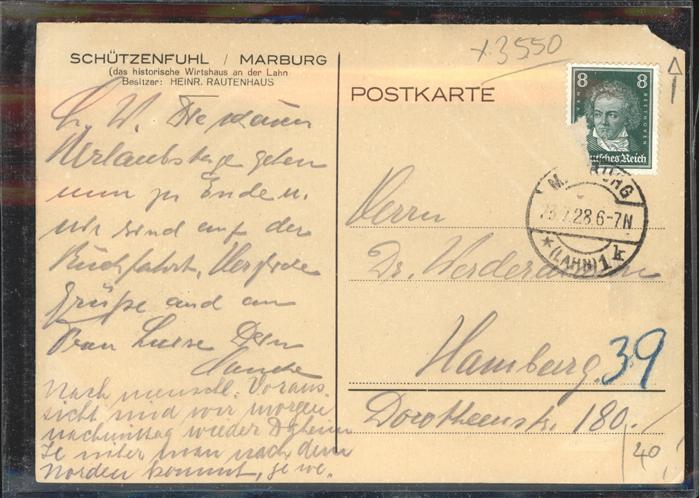 SCHÜTZENFUHL / MARBURG
(das historische Wirtshaus an der Lahn
Besitzer: HEINR. RAUTENHAUS
L. W. Die
Urlaubstage gehen
nun zu Ende u.
wir sind auf der
Rückfahrt.
Grüße and an
Frau Luise Dein
Nach menschl. Voraus-
sicht sind wir morgen
nachmittag wieder Daheim
Je weiter man nach dem
Norden kommt, je we.
x 3550
POSTKARTE
8 8
BEETHOVEN
Deutsches Reich
MARBURG
23.7.28.6-7N
* (LAHN) 1 k
Herrn
Dr.
Hamburg. 39
Dorotheenstr. 180.
40